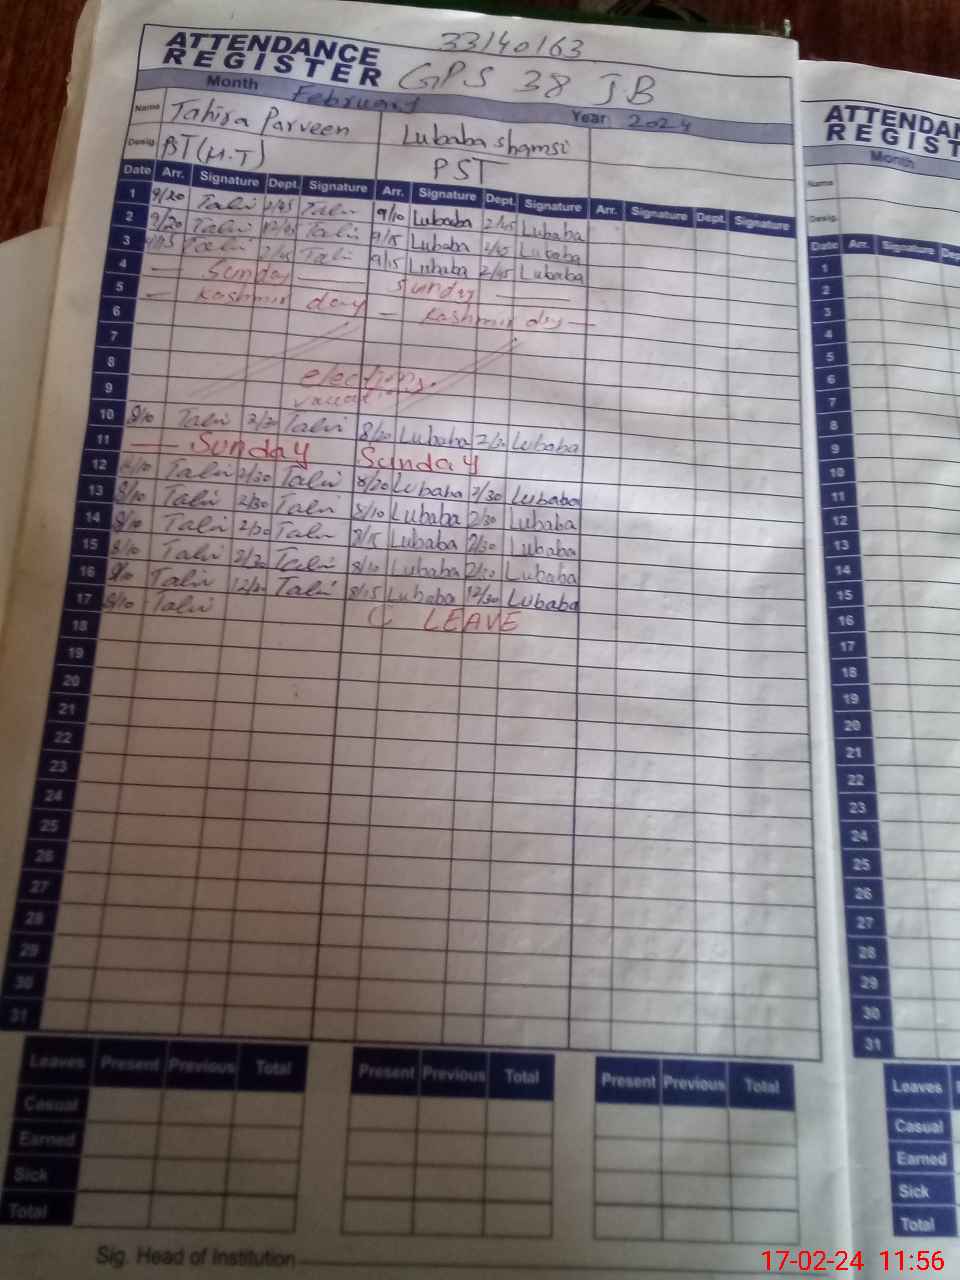 33140163
ATTENDANCE
REGISTER
GPS 38 JB
Month February Year 2024
Name Tahira Parveen Lubaba Shamsi
Desig. PST
Date Arr. Signature Dept. Signature Arr. Signature Dept. Signature Arr. Signature Dept. Signature
1 9/20 9/10 Lubaba 2/45 Lubaba
2 9/20 9/15 Lubaba 2/45 Lubaba
3 2/45 9/15 Lubaba 2/45 Lubaba
4 — Sunday — Sunday —
5 — Kashmir day — Kashmir day —
6
7
8 elections
9
10 8/10 2/30 8/20 Lubaba 2/30 Lubaba
11 — Sunday Sunday
12 8/10 2/30 8/20 Lubaba 2/30 Lubaba
13 8/10 2/30 8/10 Lubaba 2/30 Lubaba
14 8/10 2/30 8/15 Lubaba 2/30 Lubaba
15 8/10 2/30 8/10 Lubaba 2/30 Lubaba
16 8/10 12/30 8/15 Lubaba 12/30 Lubaba
17 8/10 C LEAVE
18
19
20
21
22
23
24
25
26
27
28
29
30
31
Leaves Present Previous Total Present Previous Total Present Previous Total
Casual
Earned
Sick
Total
Sig. Head of Institution
ATTENDAN
REGIST
Month
Name
Desig.
Date Arr. Signature Dep
1
2
3
4
5
6
7
8
9
10
11
12
13
14
15
16
17
18
19
20
21
22
23
24
25
26
27
28
29
30
31
Leaves
Casual
Earned
Sick
Total
17-02-24 11:56